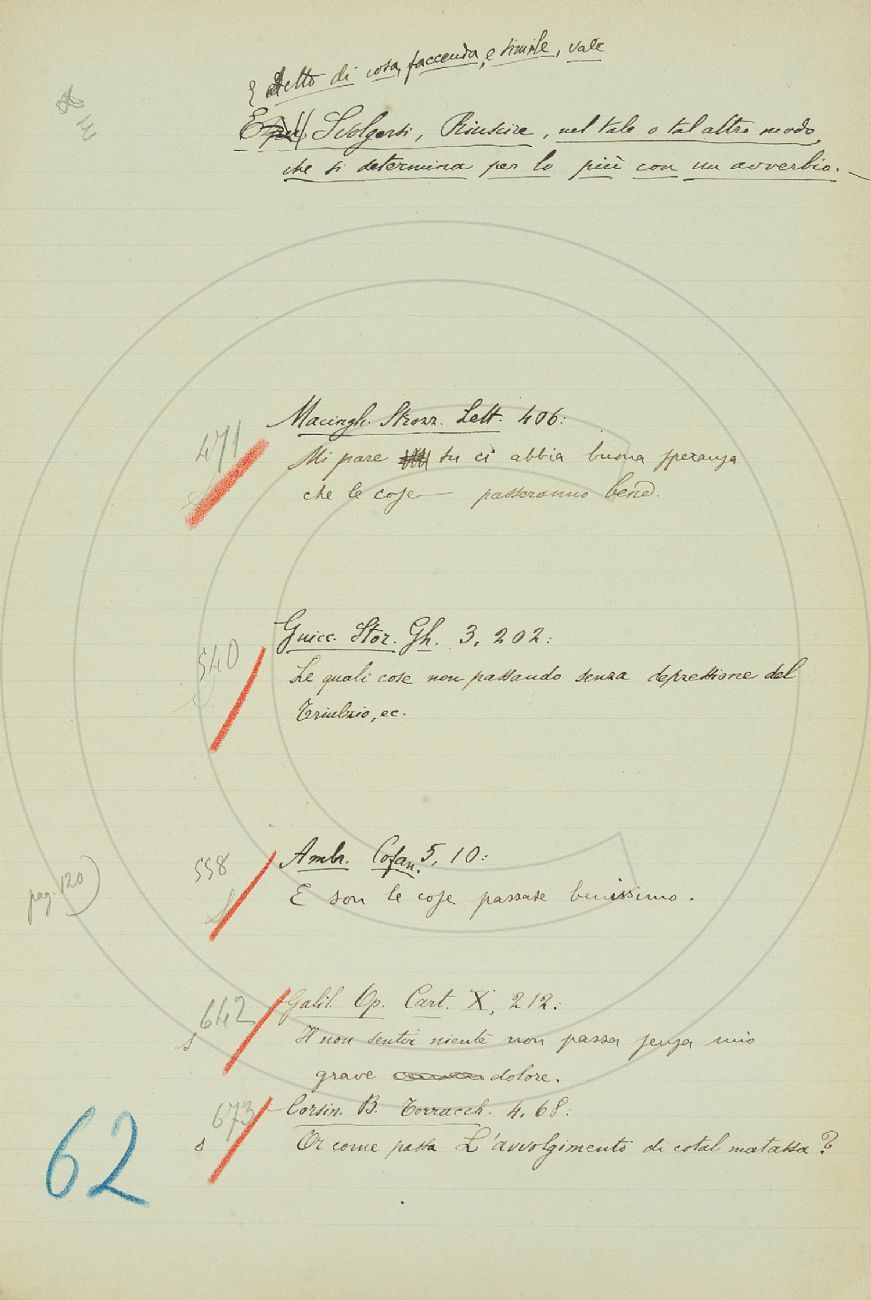 § Detto di cosa, faccenda, e simile, vale
E Svolgersi, Riuscire, nel tale o tal altro modo,
che si determina per lo più con un avverbio. –
471
Macingh. Strozz. Lett. 406:
Mi pare tu ci abbia buona speranza
che le cose — passeranno bene.
540
Guicc. Stor. Gh. 3, 202:
Le quali cose non passando senza depressione del
Triulzio, ec.
558
Ambr. Cofan. 5, 10:
pag. 120)
E son le cose passate benissimo.
642
Galil. Op. Cart. X, 212:
s
Il non sentir niente non passa senza mio
grave dolore.
673
Corsin. B. Torracch. 4, 68:
s
Or come passa L'avvolgimento di cotal matassa?
62